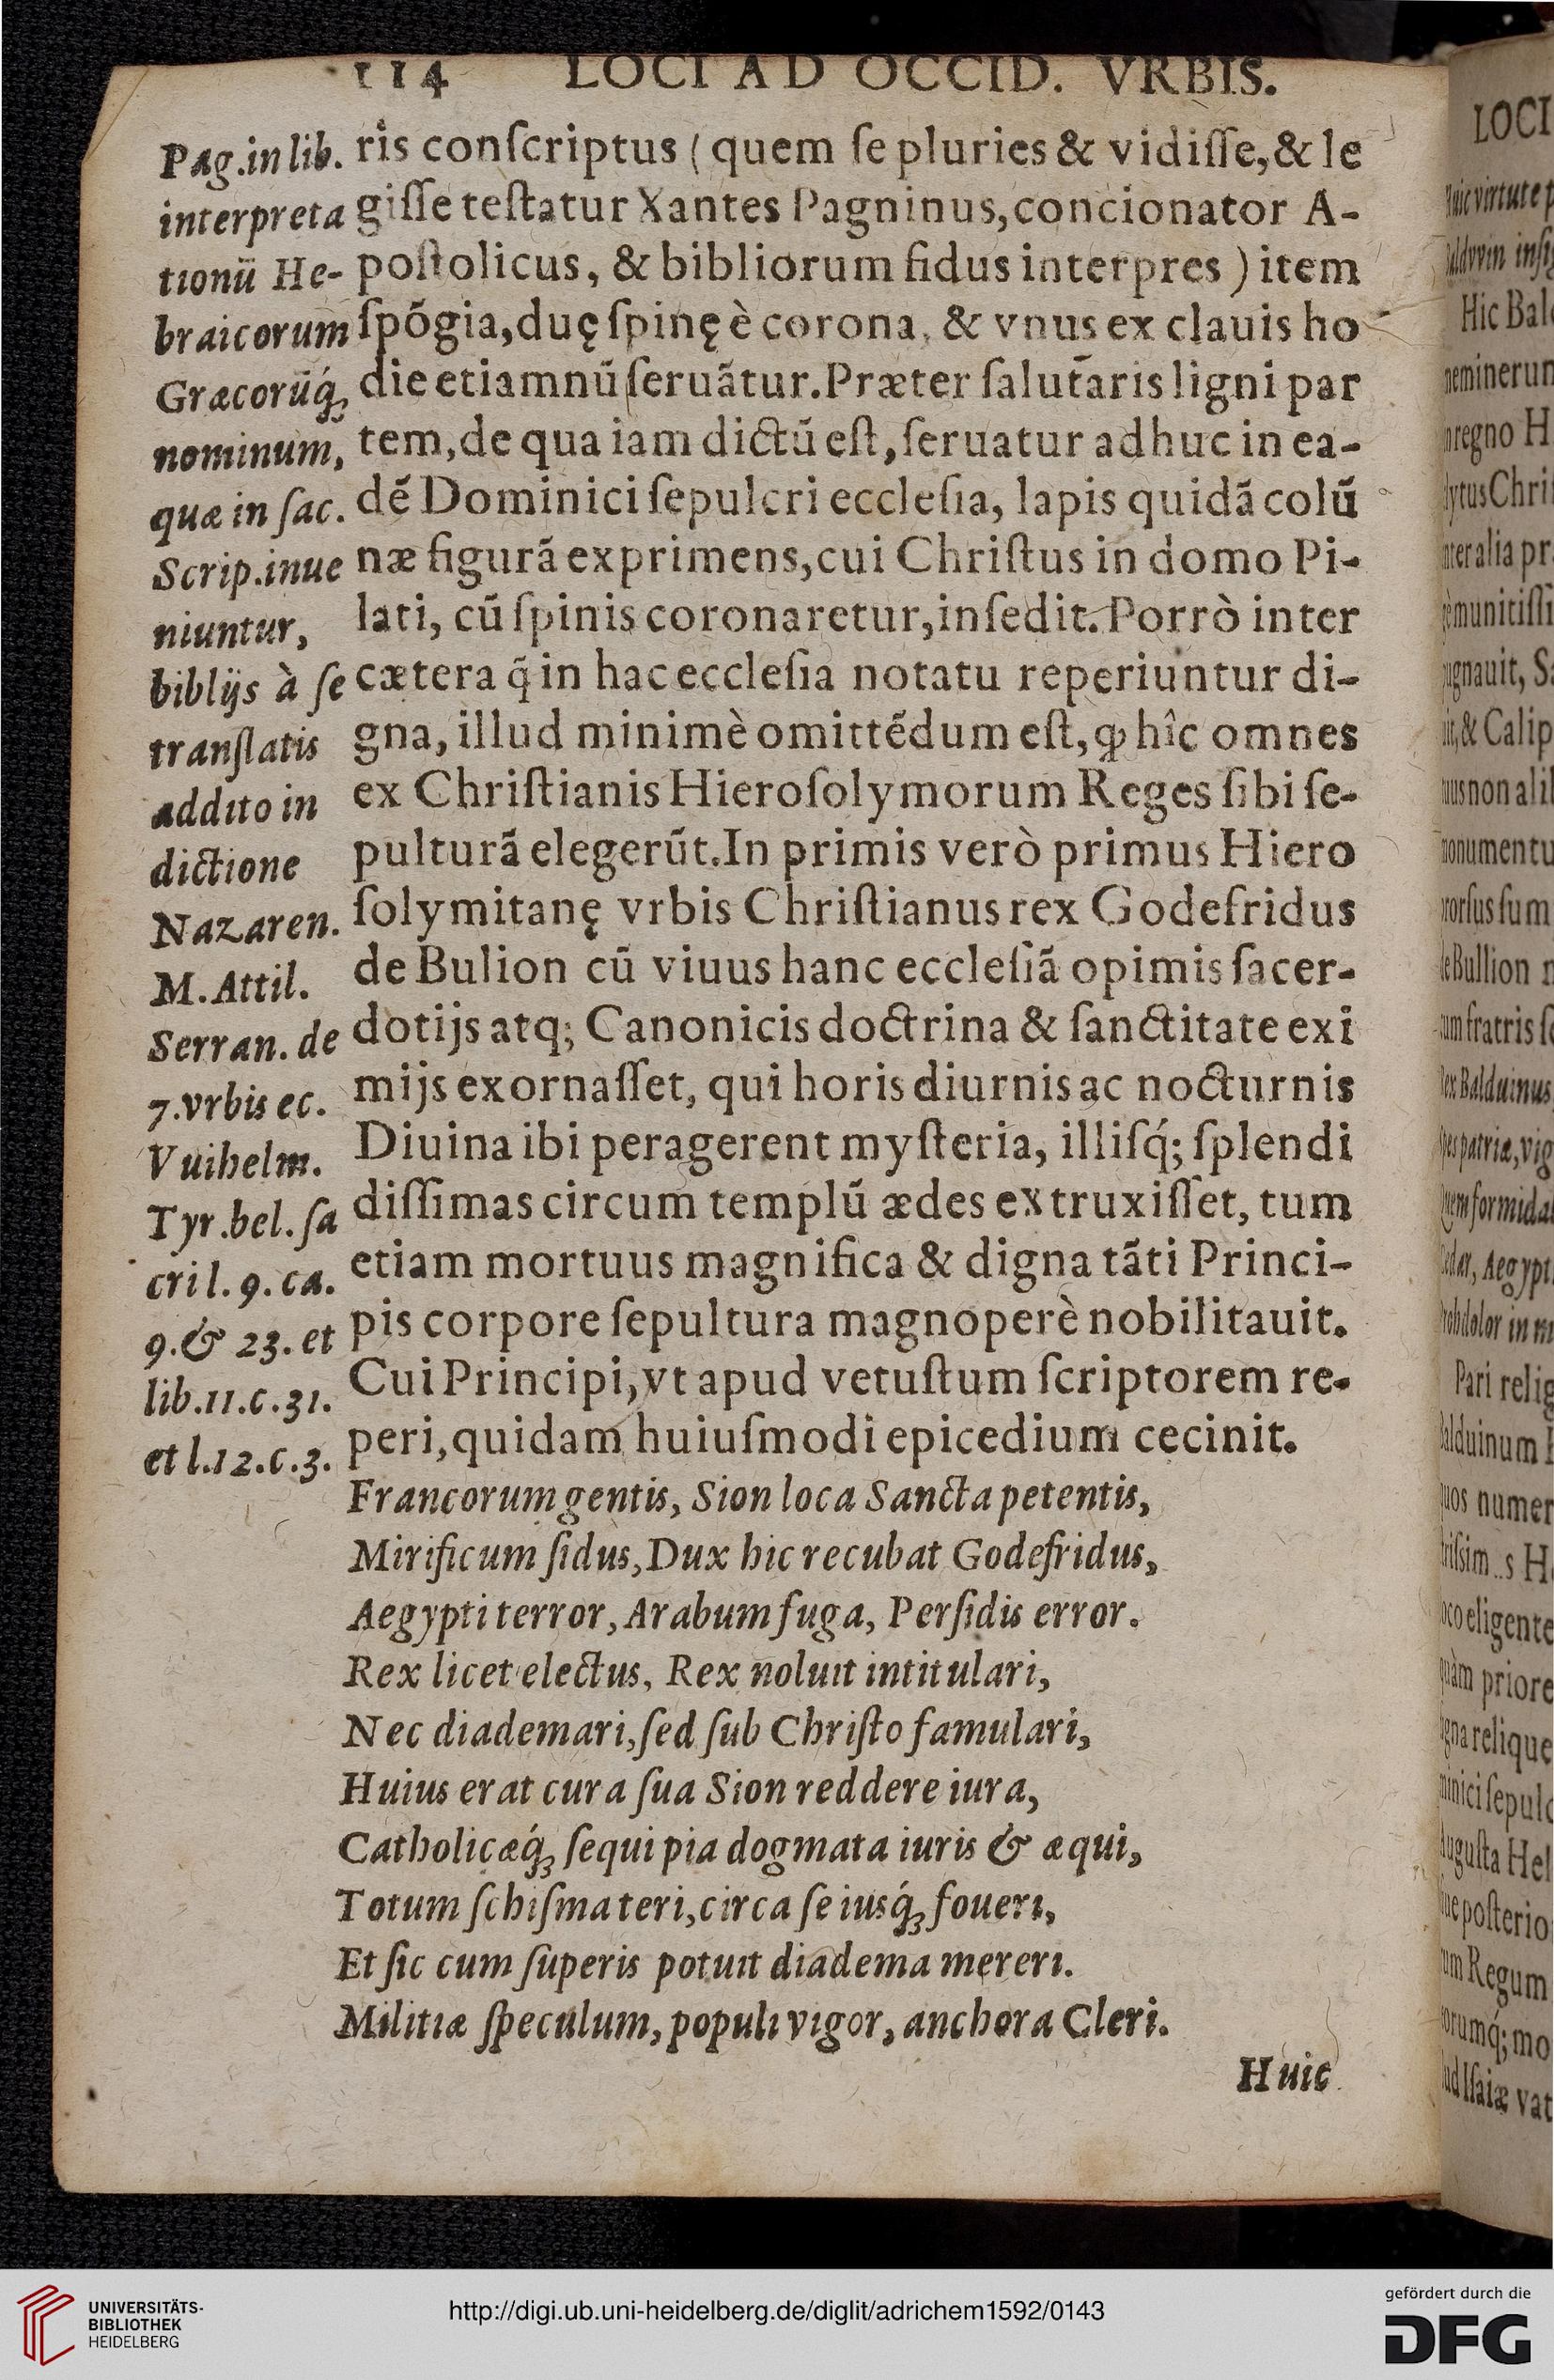 114 LOCI AD OCCID. VRBIS.
Pag.in lib.
interpreta
tionū He-
braicorum
Græcorūq́ꝫ
nominum,
quæ in ſac.
Scrip.inue
niuntur,
biblijs à ſe
tranſlatis
addito in
dictione
Nazaren.
M.Attil.
Serran. de
7.vrbis ec.
Vuihelm.
Tyr.bel.ſa
cri l.9.ca.
9.& 23. et
lib.11.c.31.
et l.12.c.3.
ris conſcriptus (quem ſe pluries & vidiſſe, & le
giſſe teſtatur Xantes Pagninus, concionator A-
poſtolicus, & bibliorum fidus interpres ) item
ſpõgia, duę ſpinę è corona, & vnus ex clauis ho
die etiamnũ ſeruãtur. Præter ſalutaris ligni par
tem, de qua iam dictũ eſt, ſeruatur adhuc in ea-
dẽ Dominici ſepulcri eccleſia, lapis quidã colũ
næ figurã exprimens, cui Chriſtus in domo Pi-
lati, cũ ſpinis coronaretur, inſedit. Porrò inter
cætera q̃ in hac eccleſia notatu reperiuntur di-
gna, illud minimè omittẽdum eſt, ꝙ hîc omnes
ex Chriſtianis Hieroſolymorum Reges ſibi ſe-
pulturã elegerũt. In primis verò primus Hiero
ſolymitanę vrbis Chriſtianus rex Godefridus
de Bulion cũ viuus hanc eccleſiã opimis ſacer-
dotijs atq; Canonicis doctrina & ſanctitate exi
mijs exornaſſet, qui horis diurnis ac nocturnis
Diuina ibi peragerent myſteria, illiſq́; ſplendi
diſſimas circum templũ ædes extruxiſſet, tum
etiam mortuus magnifica & digna tãti Princi-
pis corpore ſepultura magnoperè nobilitauit.
Cui Principi, vt apud vetuſtum ſcriptorem re-
peri, quidam huiuſmodi epicedium cecinit.
Francorum gentis, Sion loca Sancta petentis,
Mirificum ſidus, Dux hic recubat Godefridus,
Aegypti terror, Arabum fuga, Perſidis error.
Rex licet electus, Rex noluit intitulari,
Nec diademari, ſed ſub Chriſto famulari,
Huius erat cura ſua Sion reddere iura,
Catholicæq́ꝫ ſequi pia dogmata iuris & æqui,
Totum ſchiſma teri, circa ſe iusq́ꝫ foueri,
Et ſic cum ſuperis potuit diadema mereri.
Militiæ ſpeculum, populi vigor, anchora Cleri.
Huic
LOCI
Hic Bal
regno H
inter alia pr
monumentu
de Bullion
um fratris ſ
Rex Balduinus
ſpes patriæ, vig
Pari relig
Balduinum
quos numer
loco eligente
quàm priore
Auguſta Hel
poſterio
um Regum
orumq́; mo
UNIVERSITÄTS-
BIBLIOTHEK
HEIDELBERG
http://digi.ub.uni-heidelberg.de/diglit/adrichem1592/0143
gefördert durch die
DFG